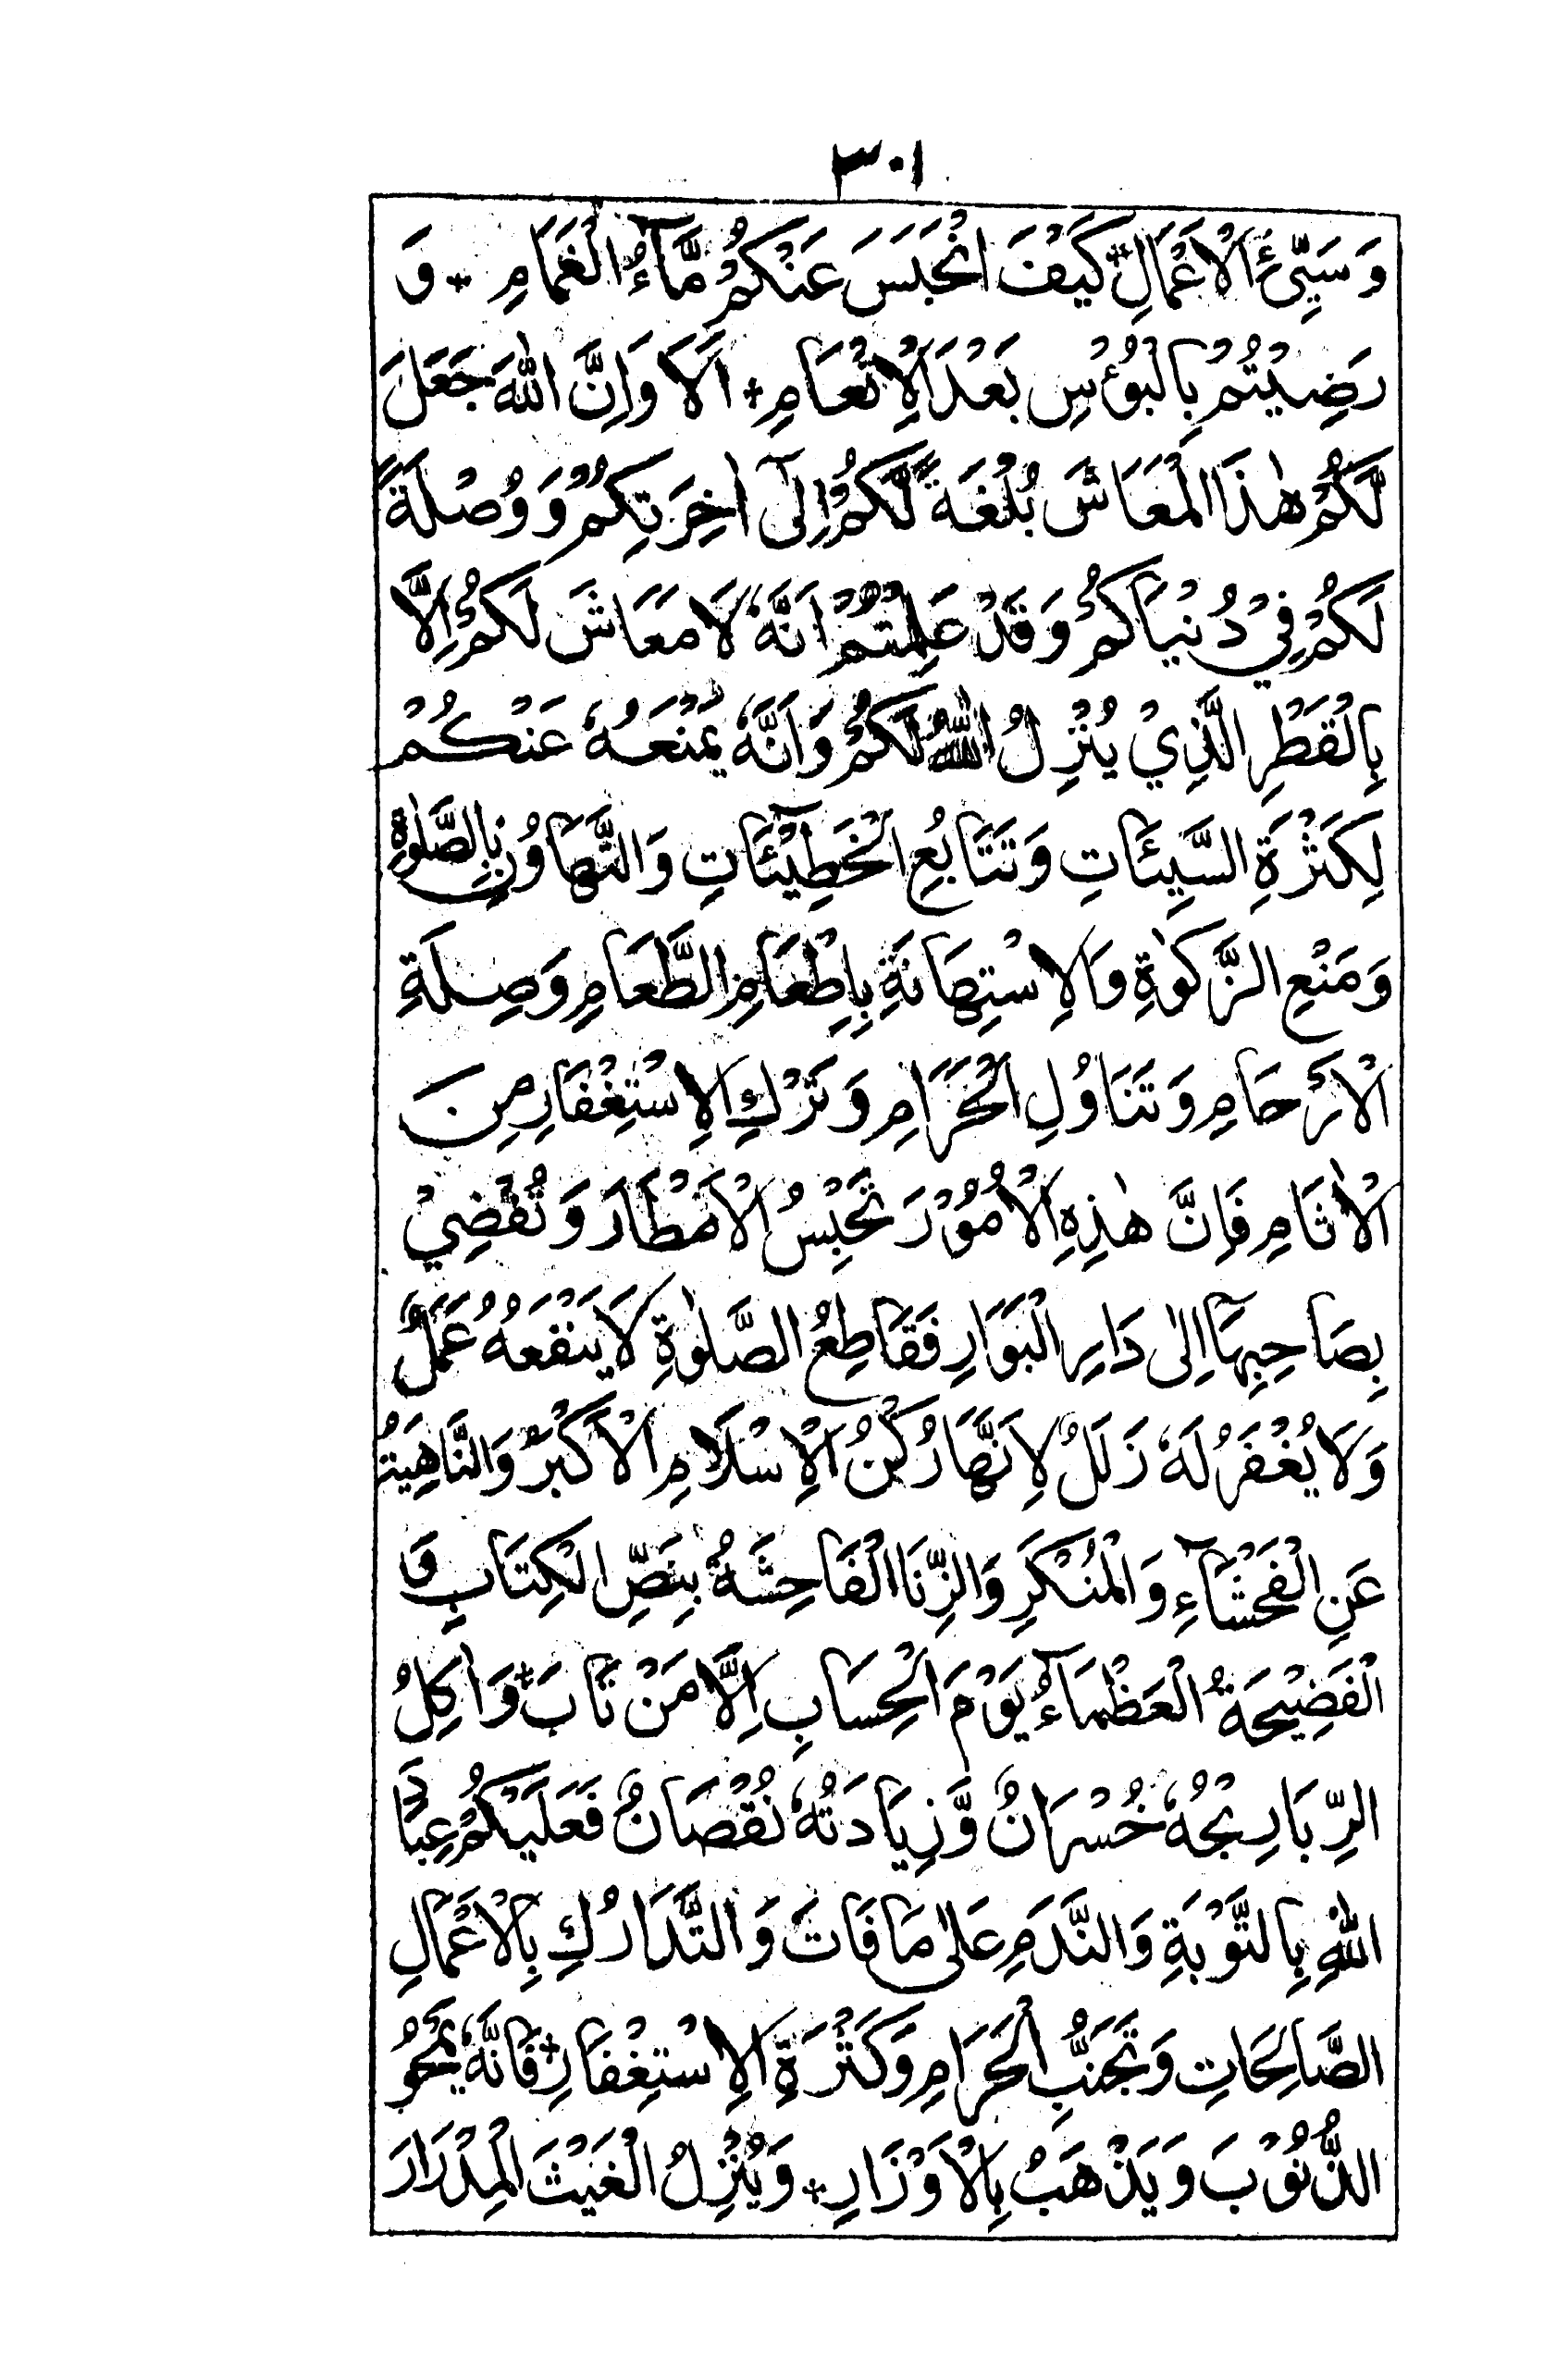 ٣٠١
وَسَيِّئِ الْاَعْمَالِ ٭ كَيْفَ انْحَبَسَ عَنْكُمْ مَّآءُ الْغَمَامِ ٭ وَ
رَضِيْتُمْ بِالْبُؤْسِ بَعْدَ الْاِنْعَامِ ٭ اَلَا وَاِنَّ اللهَ جَعَلَ
لَكُمْ هٰذَا الْمَعَاشَ بُلْغَةً لَّكُمْ اِلٰٓى اٰخِرَتِكُمْ وَوُصْلَةً
لَكُمْ فِيْ دُنْيَاكُمْ وَقَدْ عَلِمْتُمْ اَنَّهٗ لَا مَعَاشَ لَكُمْ اِلَّا
بِالْقَطْرِ الَّذِيْ يُنْزِلُ اللهُ لَكُمْ وَاَنَّهٗ يَمْنَعُهٗ عَنْكُمْ
لِكَثْرَةِ السَّيِّئَاتِ وَتَتَابُعِ الْخَطِيْٓئَاتِ وَالتَّهَاوُنِ بِالصَّلٰوةِ
وَمَنْعِ الزَّكٰوةِ وَالْاِسْتِهَانَةِ بِاِطْعَامِ الطَّعَامِ وَصِلَةِ
الْاَرْحَامِ وَتَنَاوُلِ الْحَرَامِ وَتَرْكِ الْاِسْتِغْفَارِ مِنَ
الْاٰثَامِ فَاِنَّ هٰذِهِ الْاُمُوْرَ تَحْبِسُ الْاَمْطَارَ وَتُفْضِيْ
بِصَاحِبِهَا اِلٰى دَارِ الْبَوَارِ فَقَاطِعُ الصَّلٰوةِ لَا يَنْفَعُهٗ عَمَلٌ
وَلَا يُغْفَرُ لَهٗ زَلَلٌ لِاَنَّهَا رُكْنُ الْاِسْلَامِ الْاَكْبَرُ وَالنَّاهِيَةُ
عَنِ الْفَحْشَآءِ وَالْمُنْكَرِ وَالزِّنَا الْفَاحِشَةُ بِنَصِّ الْكِتَابِ وَ
الْفَضِيْحَةُ الْعَظْمَآءُ يَوْمَ الْحِسَابِ اِلَّا مَنْ تَابَ ٭ وَاٰكِلُ
الرِّبَا رِبْحُهٗ خُسْرَانٌ وَّزِيَادَتُهٗ نُقْصَانٌ فَعَلَيْكُمْ عِبَادَ
اللهِ بِالتَّوْبَةِ وَالنَّدَمِ عَلٰى مَا فَاتَ وَالتَّدَارُكِ بِالْاَعْمَالِ
الصَّالِحَاتِ وَتَجَنُّبِ الْحَرَامِ وَكَثْرَةِ الْاِسْتِغْفَارِ ٭ فَاِنَّهٗ يَمْحُو
الذُّنُوْبَ وَيَذْهَبُ بِالْاَوْزَارِ ٭ وَيُنْزِلُ الْغَيْثَ الْمِدْرَارَ